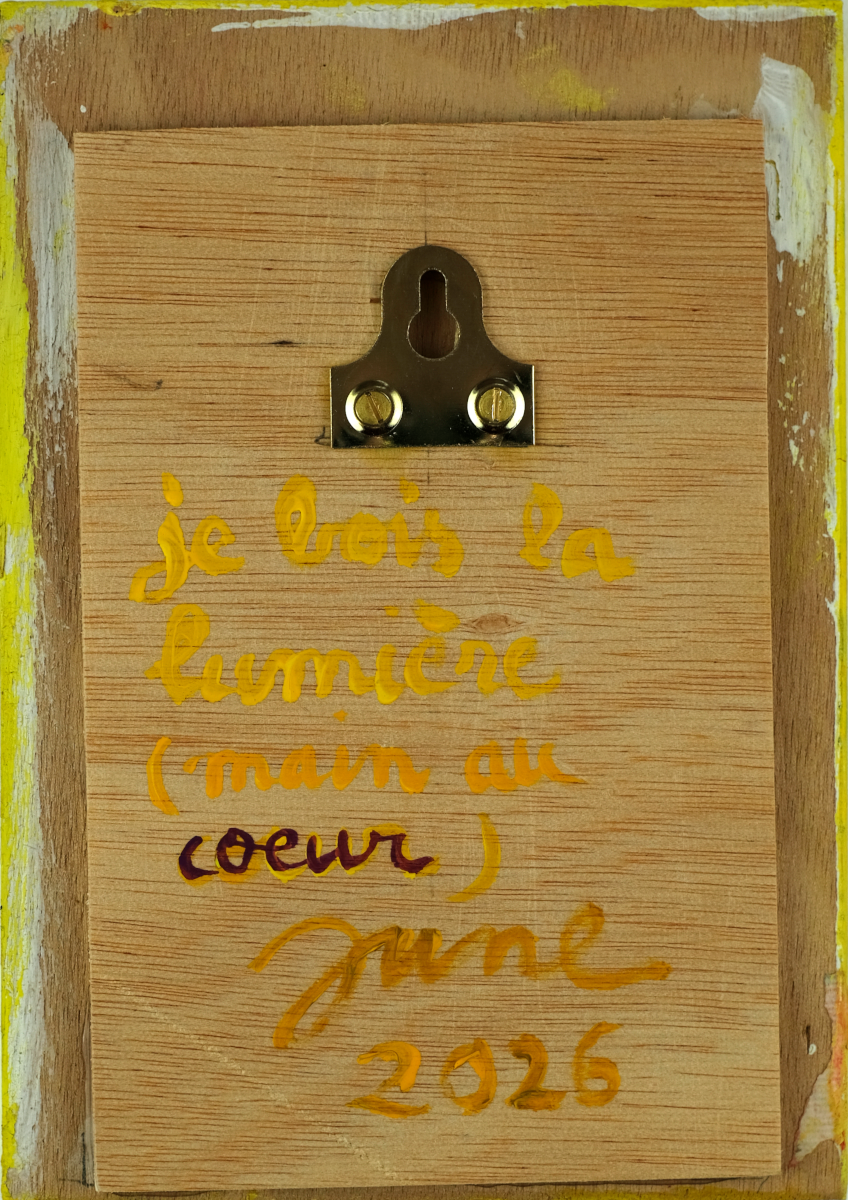 je bois la
lumière
(main au
coeur)
June
2026